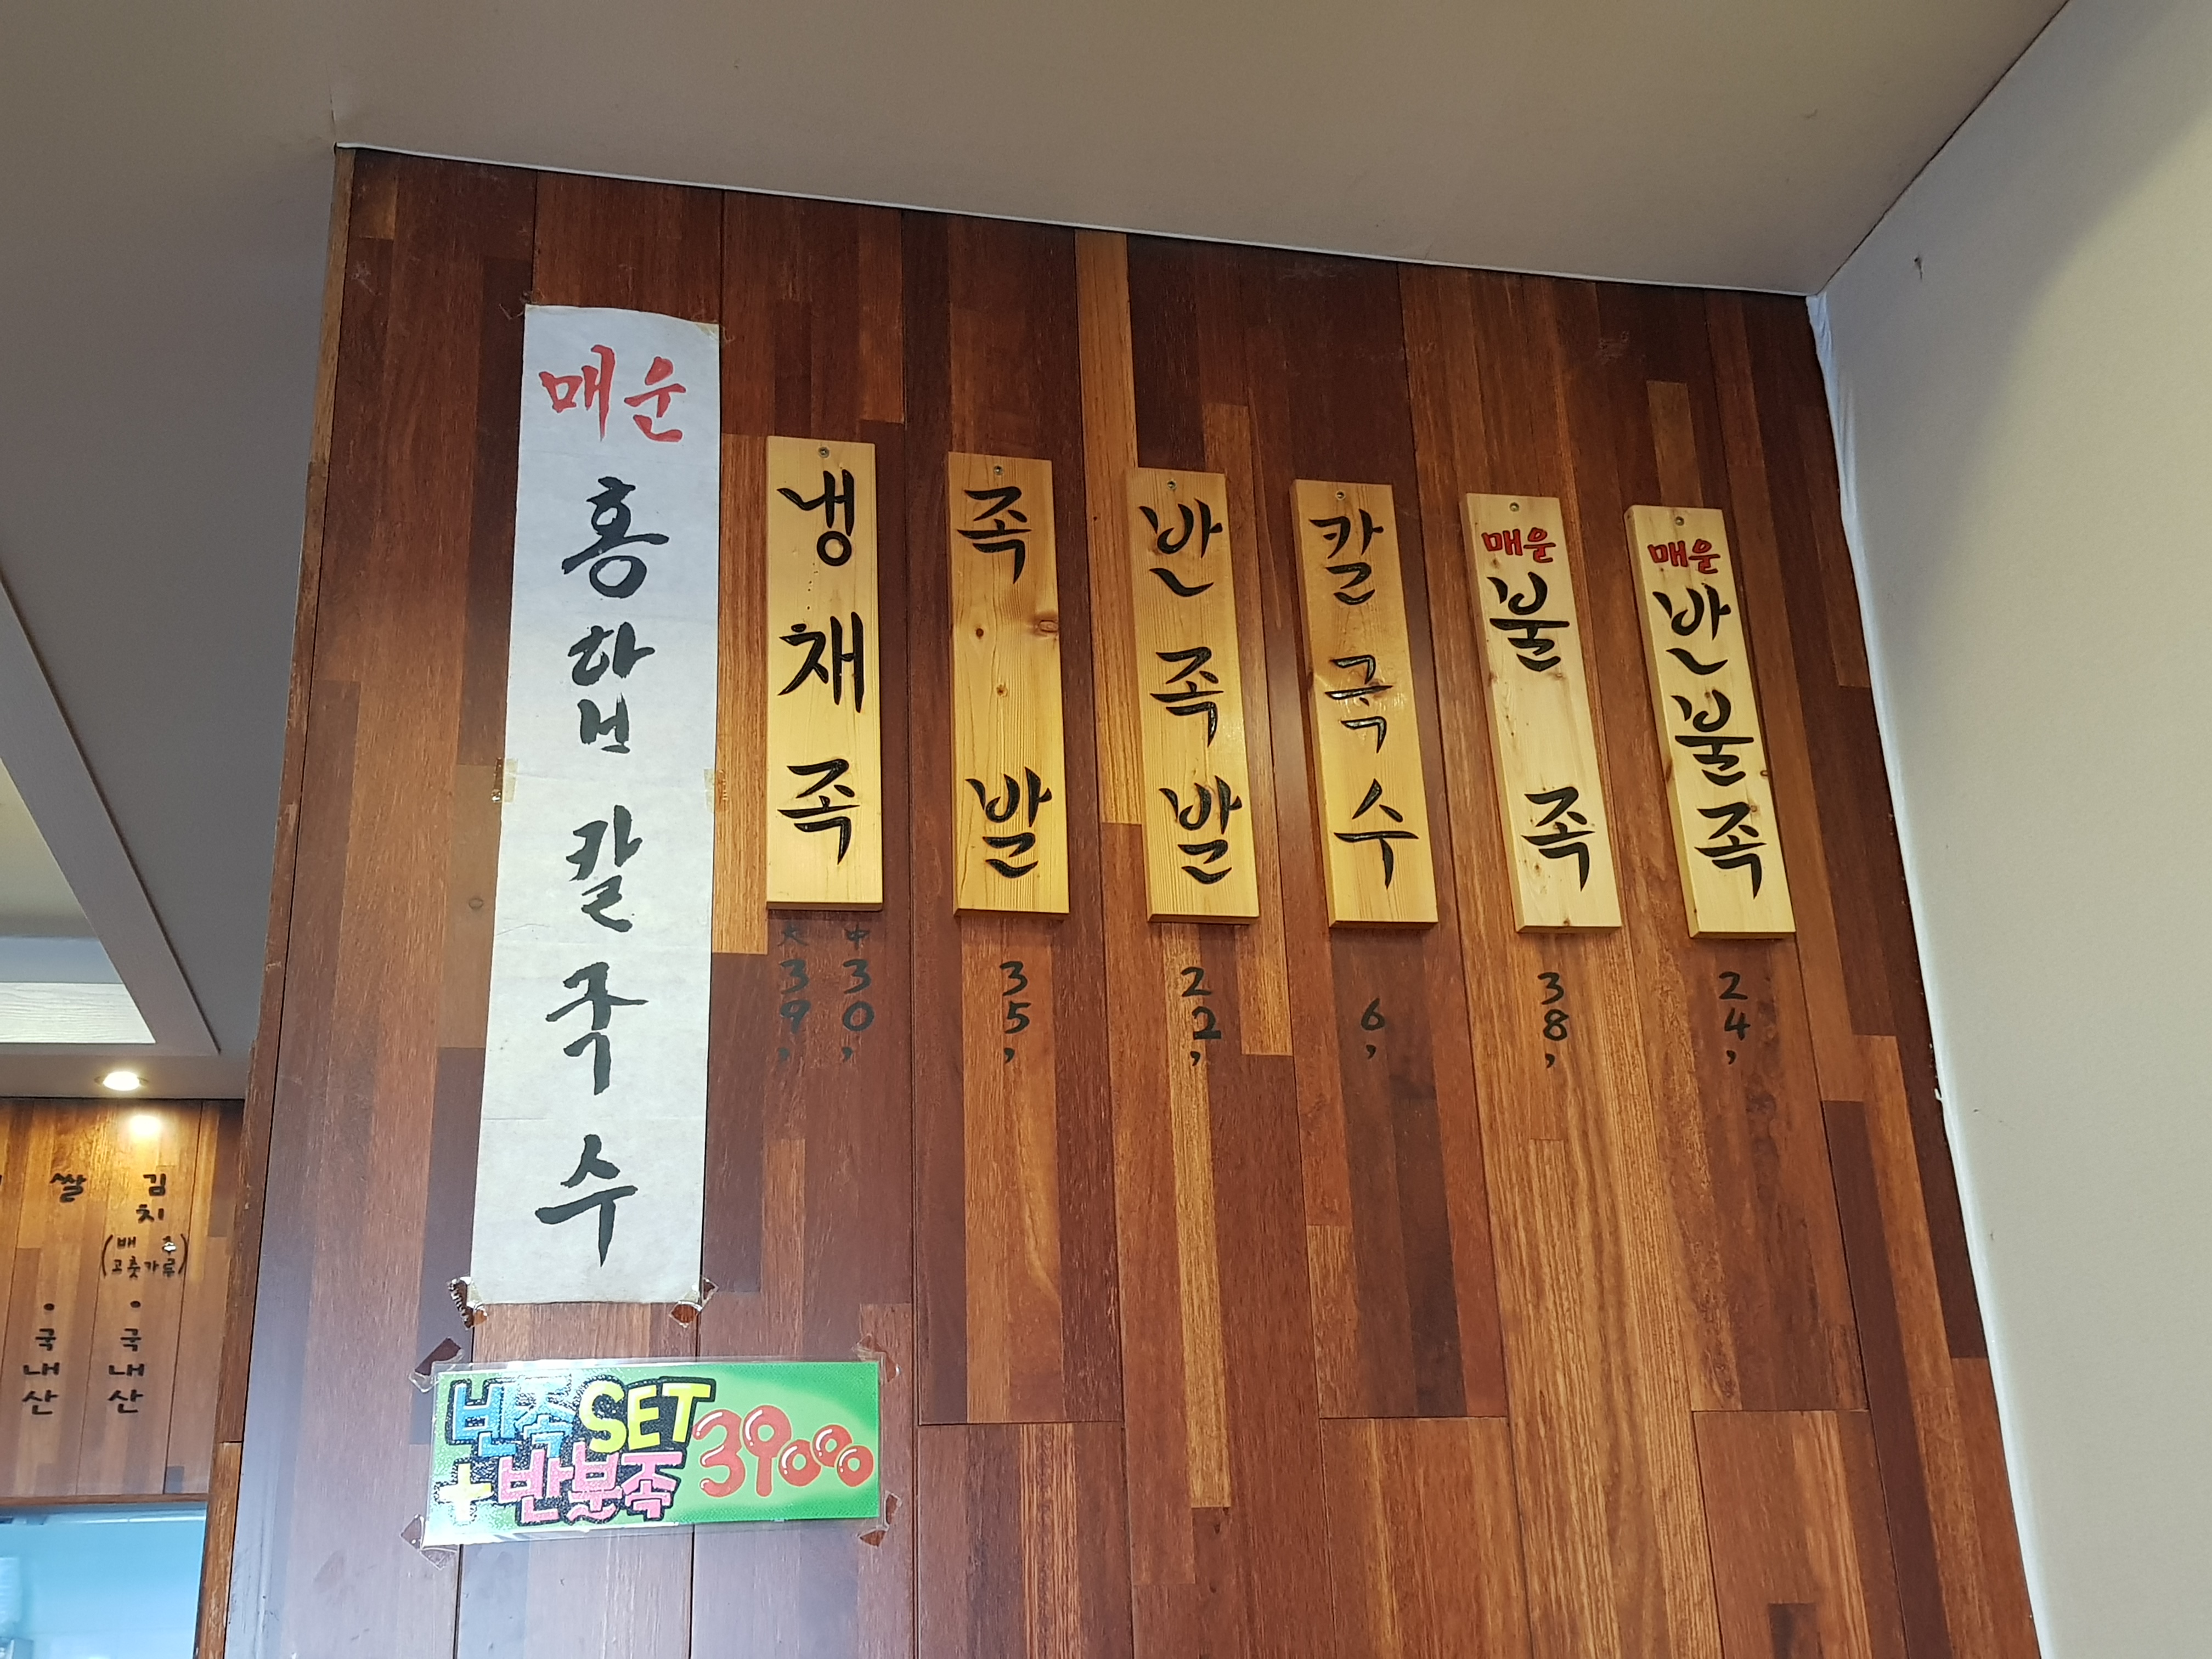 매운 홍합칼국수
냉채족
大 39,
中 30,
족발
35,
반족발
22,
칼국수
6,
매운 불족
38,
매운 반불족
24,
반족 SET 39000
+반불족
쌀
국내산
김치
(배추
고춧가루)
국내산